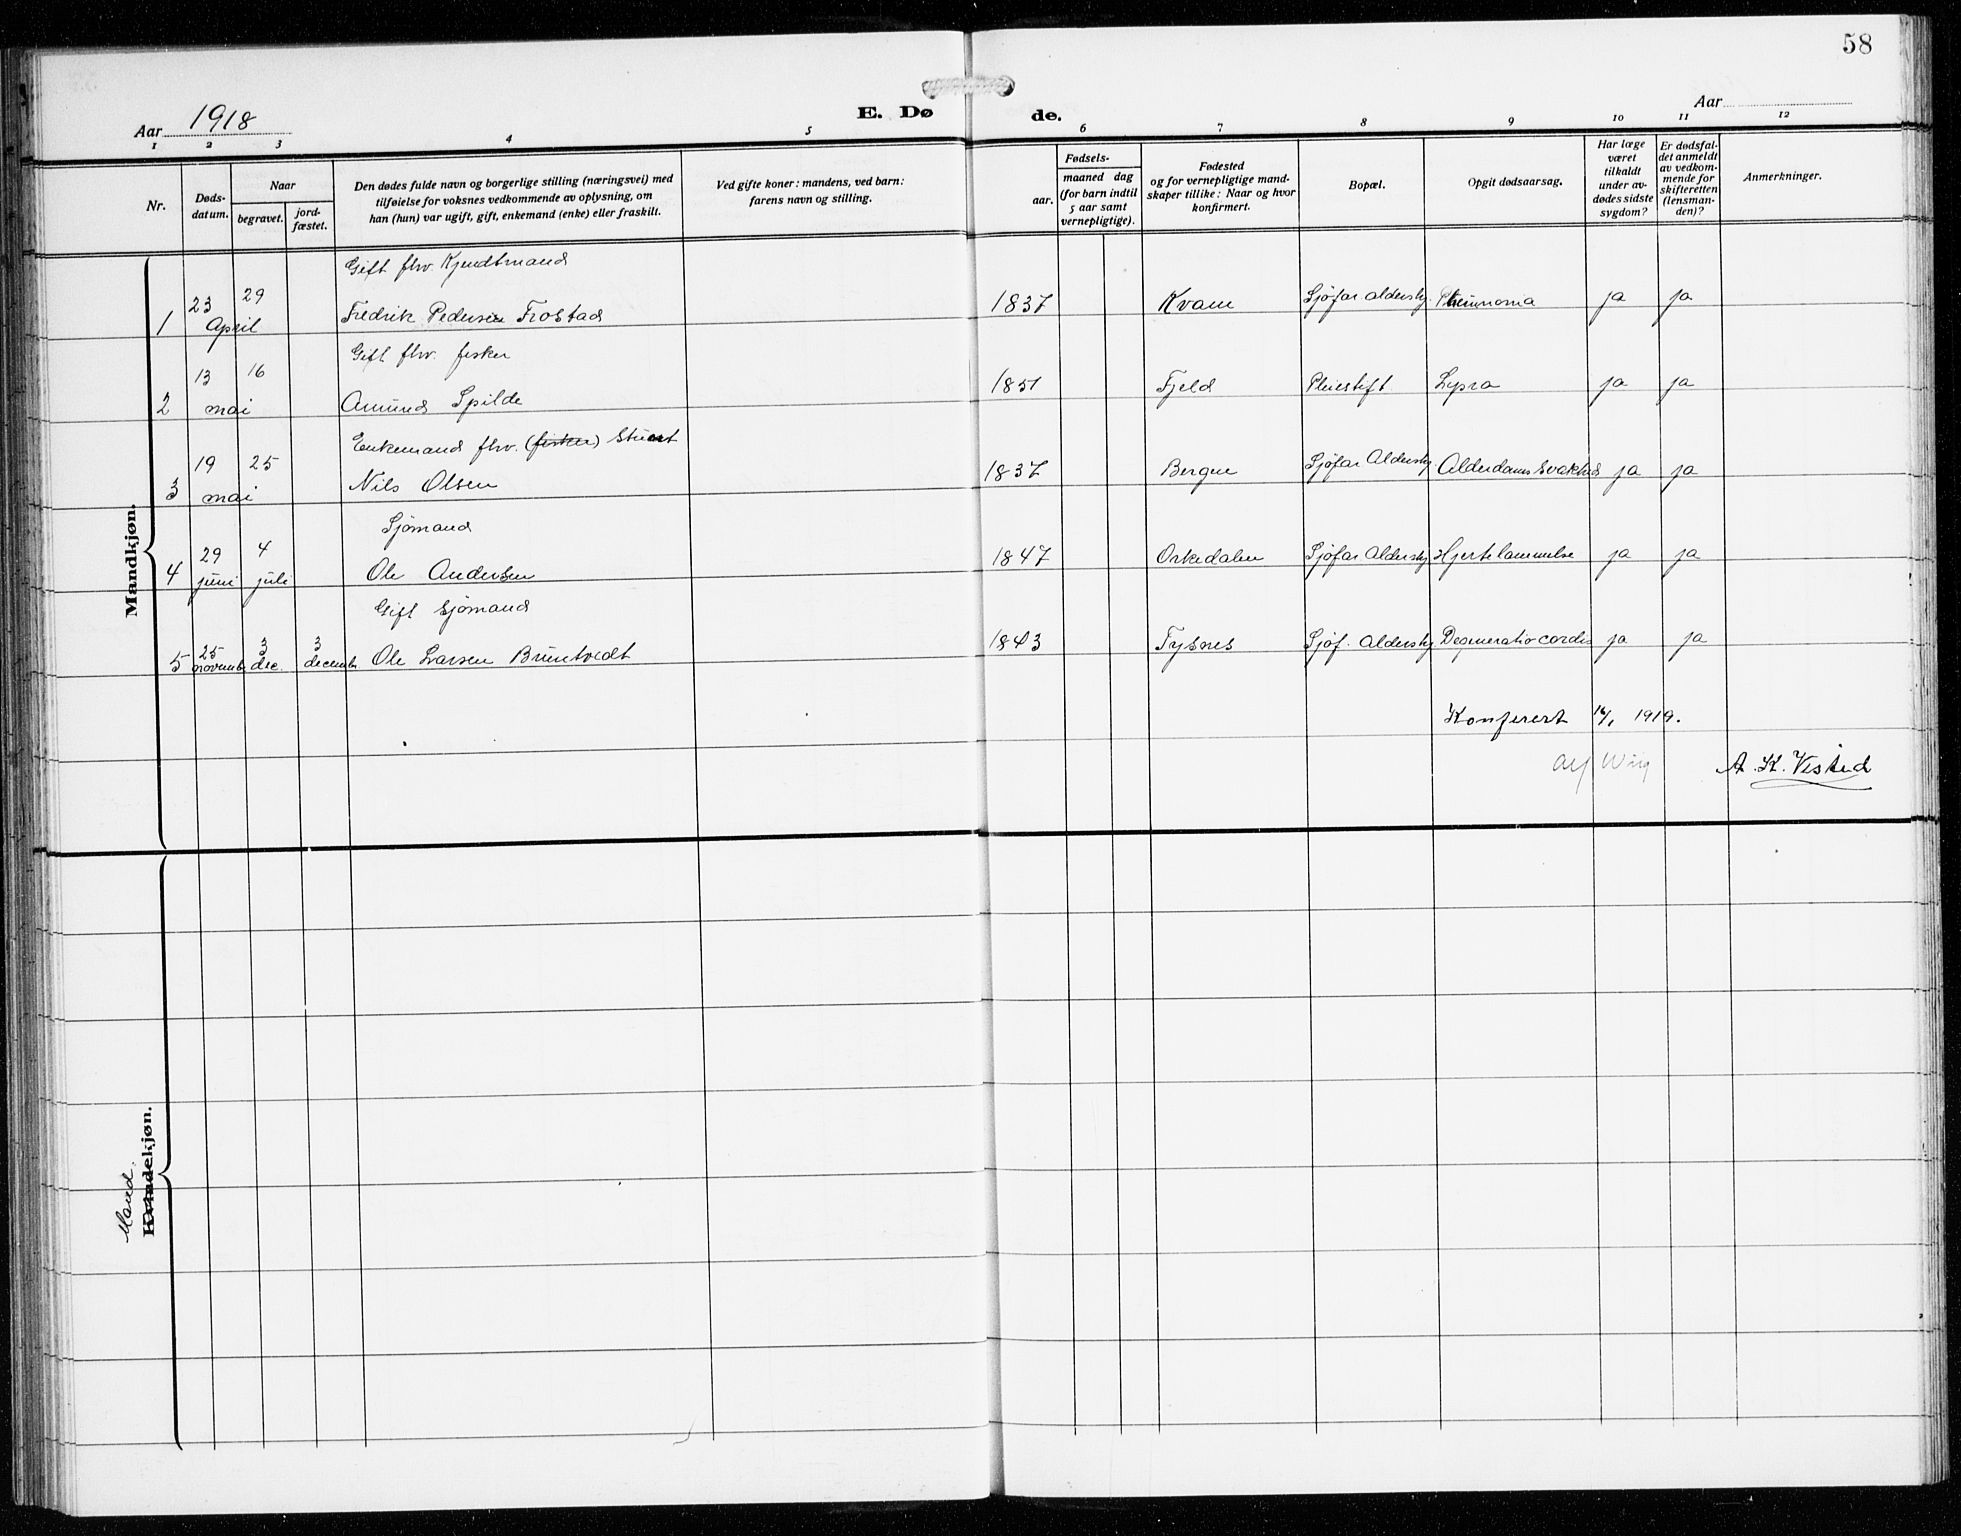 58
Aar 1918
E. Døde.
Aar
1 2 3 4 5 6 7 8 9 10 11 12
Nr.
Døds-
datum.
Naar
begravet.
jord-
fæstet.
Den dødes fulde navn og borgerlige stilling (næringsvei) med
tilføielse for voksnes vedkommende av oplysning, om
han (hun) var ugift, gift, enkemand (enke) eller fraskilt.
Ved gifte koner: mandens, ved barn:
farens navn og stilling.
Fødsels-
aar.
maaned dag
(for barn indtil
5 aar samt
vernepligtige).
Fødested
og for vernepligtige mand-
skaper tillike: Naar og hvor
konfirmert.
Bopæl.
Opgit dødsaarsag.
Har læge
været
tilkaldt
under av-
dødes sidste
sygdom?
Er dødsfal-
det anmeldt
av vedkom-
mende for
skifteretten
(lensman-
den)?
Anmerkninger.
Mandkjøn.
Gift fhv.
1 23 April 29 Fredrik Pedersen Frostad 1837 Kvam Sjøfar. aldershj. ja ja
Gift fhv. fisker
2 13 mai 16 Amund Spilde 1851 Fjeld Pleiestift Lepra ja ja
Enkemand fhv. (fisker) Stuert
3 19 mai 25 Nils Olsen 1837 Bergen Sjøfar. Aldershj. Alderdoms svakhed ja ja
Sjømand
4 29 juni 4 juli Ole Andersen 1847 Orkedalen Sjøfar Aldershj Hjertelammelse ja ja
Gift Sjømand
5 25 novembr 3 dec. 3 decembr Ole Larsen Bruntvedt 1843 Tysnes Sjøf. Aldershj Degeneratio cordis ja ja
Konferert 16/1 1919.
A. K. Vistid
Mand.
Kvindekjøn.